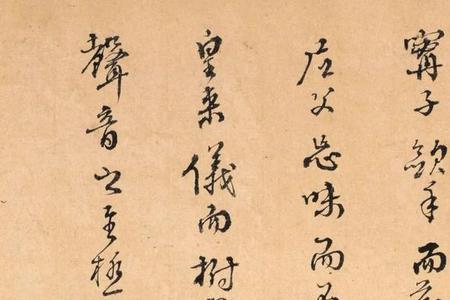 甯子歛手而
尼父忘味而不
皇來儀而拊
聲音之至極